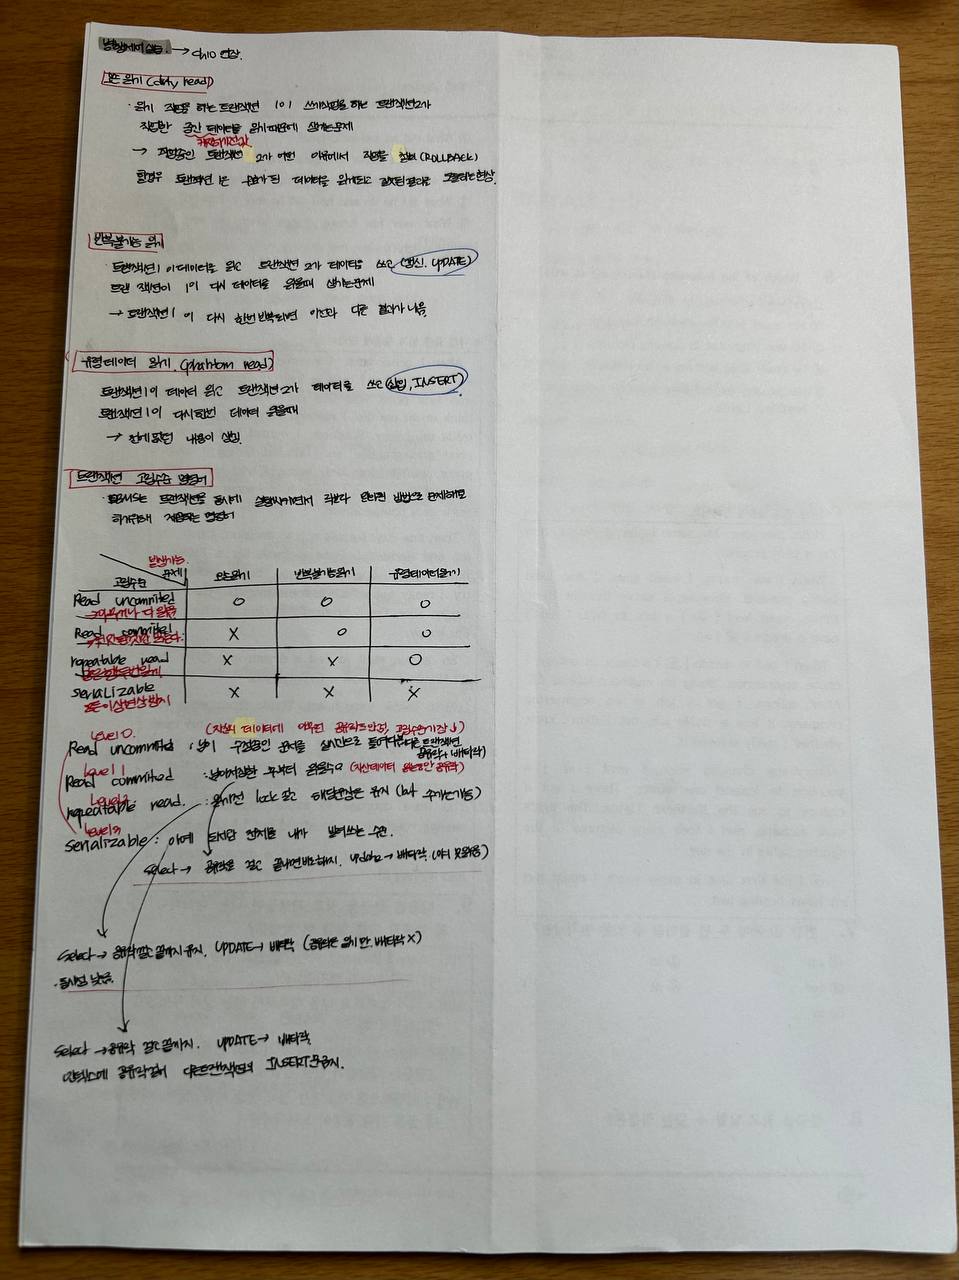 병행제어 실습. → ch10 연장.
오손 읽기 (dirty read)
· 읽기 작업을 하는 트랜잭션 1이 쓰기작업을 하는 트랜잭션2가
작업한 중간 데이터를 읽기 때문에 생기는문제
→ 작업중인 트랜잭션 2가 어떤 이유에서 작업을 철회 (ROLLBACK)
할경우 트랜잭션 1은 무효가 된 데이터를 읽게되고 잘못된 결과를 도출하는 현상.
반복불가능 읽기
· 트랜잭션1이 데이터를 읽고 트랜잭션 2가 데이터를 쓰고 (갱신. UPDATE)
트랜잭션이 1이 다시 데이터를 읽을때 생기는문제
→ 트랜잭션1이 다시 한번 반복되면 이전과 다른 결과가 나옴.
유령데이터 읽기 (phantom read)
트랜잭션1이 데이터 읽고 트랜잭션 2가 데이터를 쓰고 (삽입, INSERT)
트랜잭션1이 다시한번 데이터 읽을때
→ 전에 없던 내용이 생김.
트랜잭션 고립수준 명령어
· DBMS는 트랜잭션을 동시에 실행시키면서 락보다 완화된 방법으로 문제해결
하기위해 제공하는 명령어
발생가능
문제
고립수준 오손읽기 반복불가능읽기 유령데이터읽기
Read uncommited O O O
Read commited X O O
repeatable read X X O
serializable X X X
모든이상현상방지
level 0.
Read uncommited : 남이 수정중인 문서를 실시간으로
공유락, 배타락)
level 1
Read commited : 남이저장한 후부터 읽을수O
level 2
repeatable read. : 읽기전 lock 걸고 해당문장은 유지 (but 추가는가능)
level 3
serializable : 아예 전체를 내가 빌려쓰는 수준.
Select → 공유락을 걸고 끝나면바로해지. update → 배타락
Select → 공유락 걸고 끝까지 유지. UPDATE → 배타락 (공유락은 읽기만. 배타락 X)
· 동시성 낮음.
Select → 공유락 걸고 끝까지. UPDATE → 배타락.
인덱스에 공유락걸어 다른트랜잭션의 INSERT문금지.